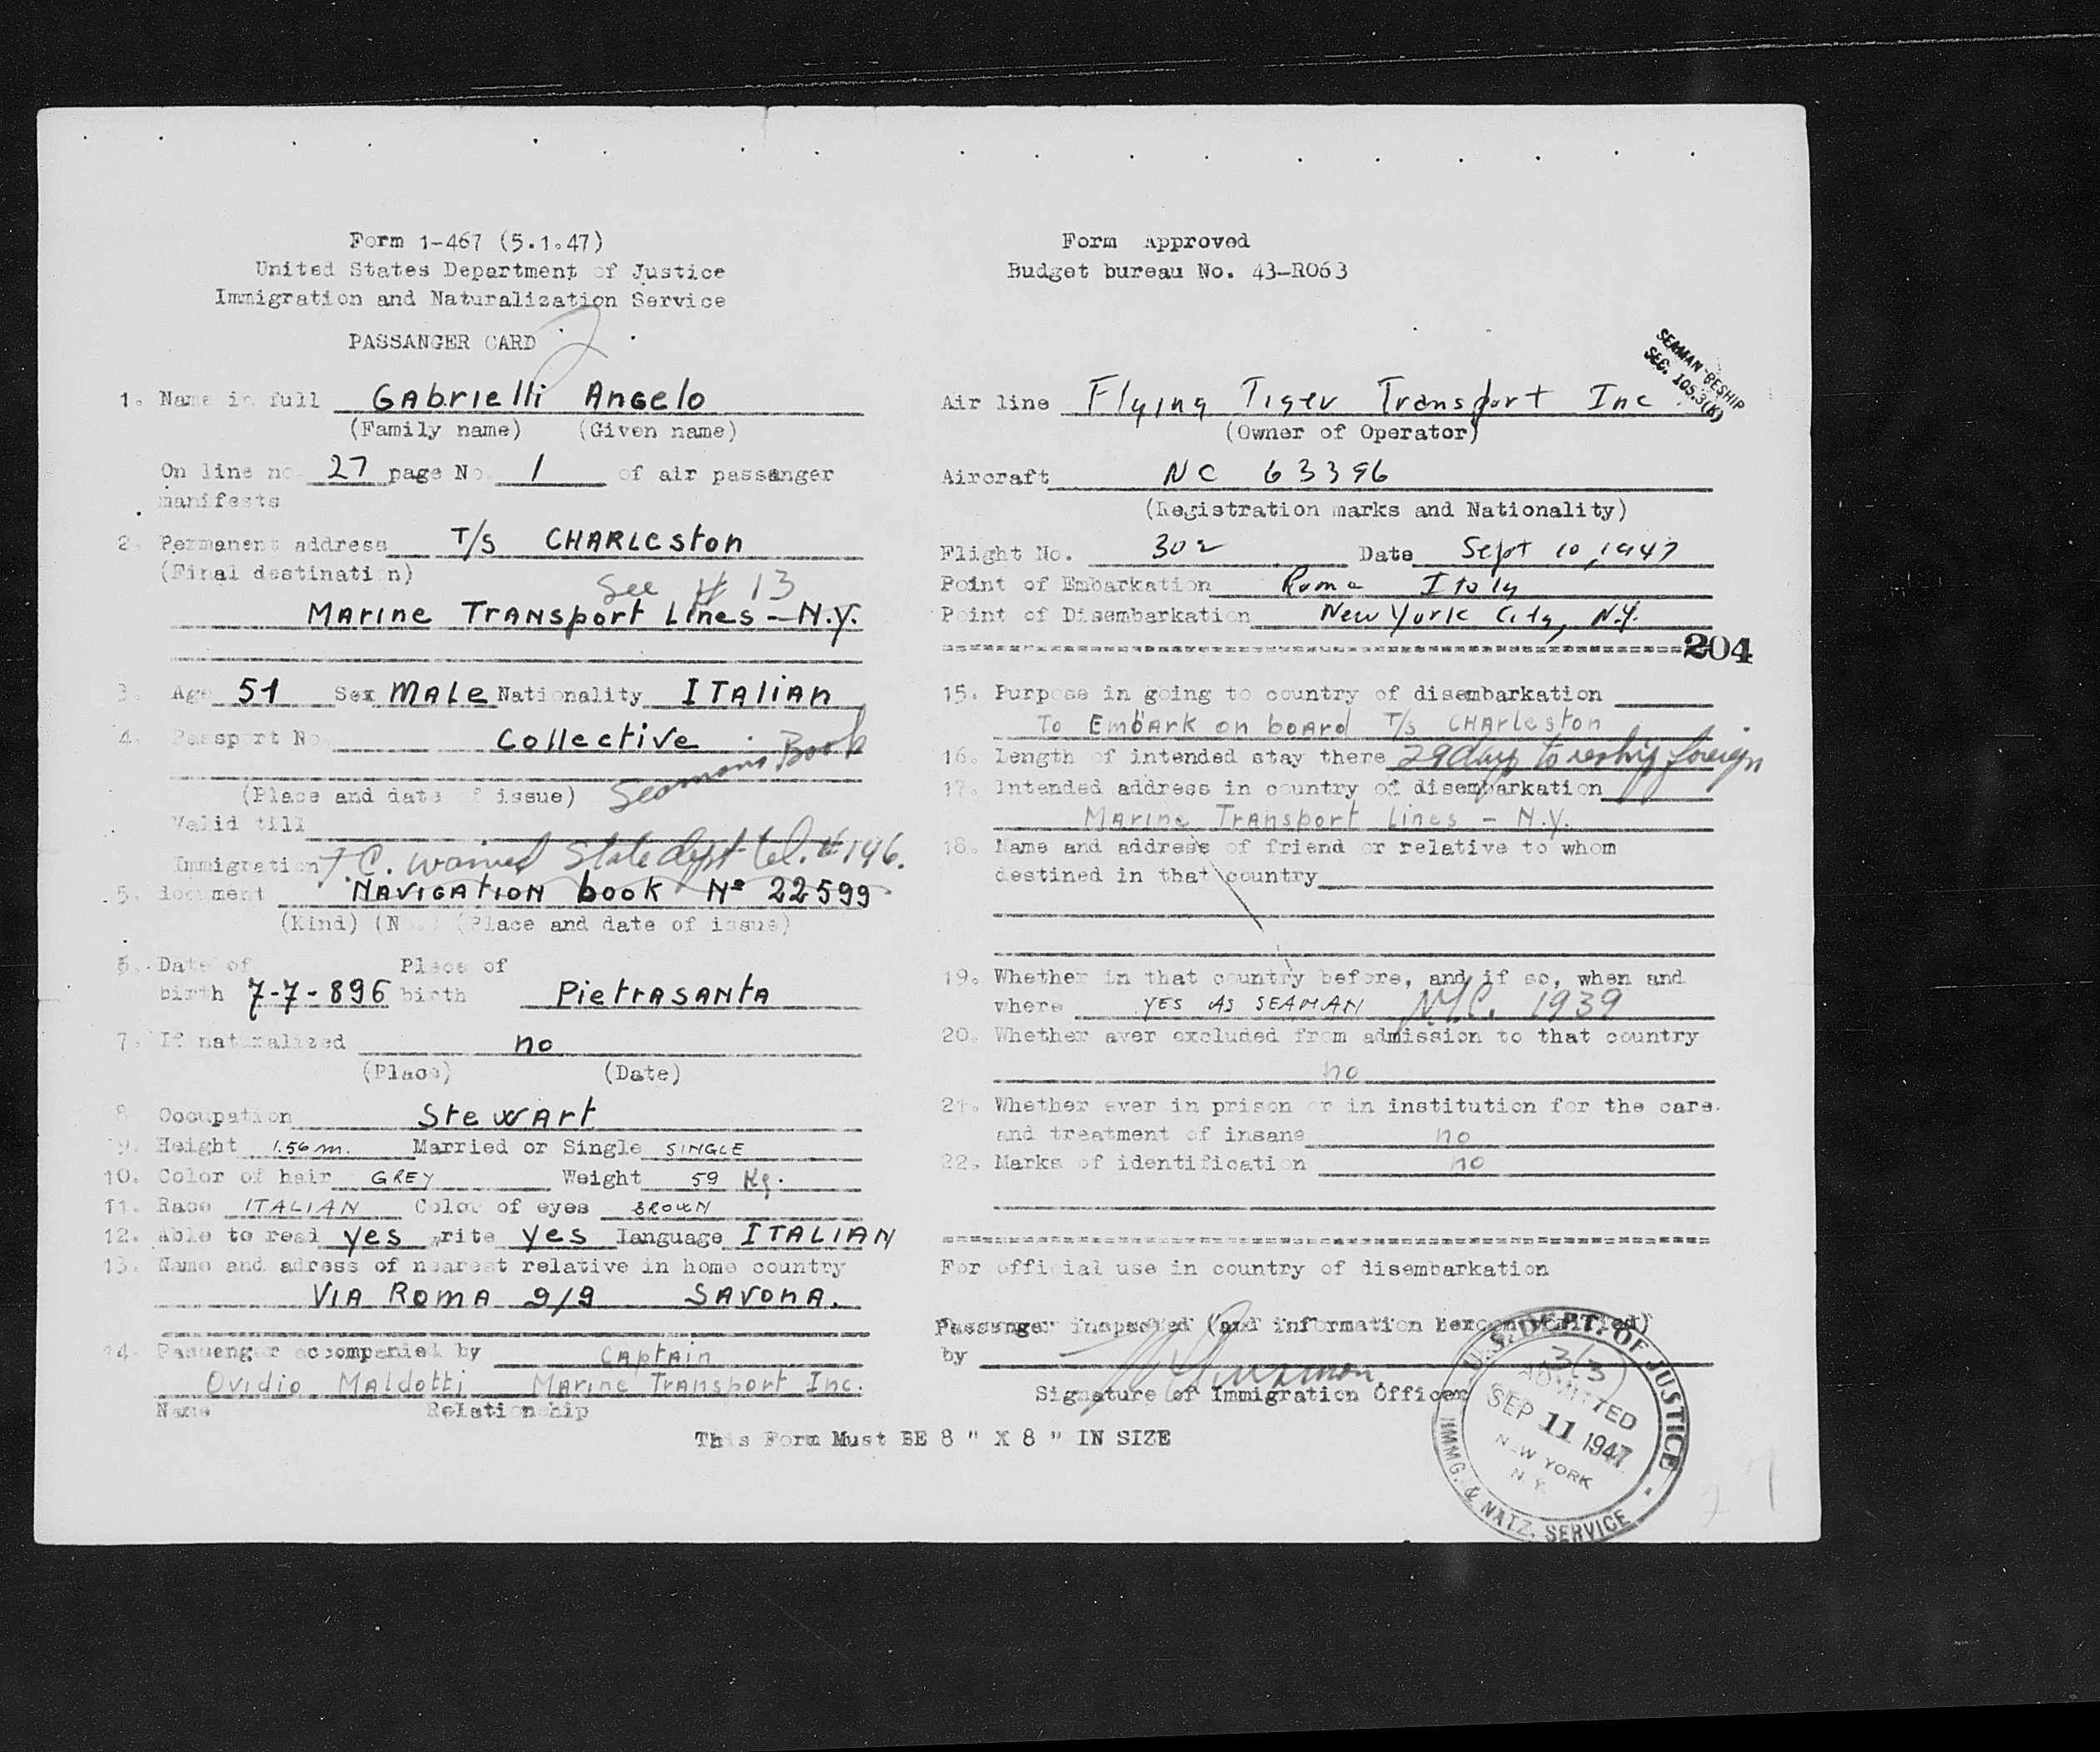 Form 1-467 (5.1.47)
United States Department of Justice
Immigration and Naturalization Service
PASSANGER CARD
1. Name in full GAbrielli AnGelo
(Family name) (Given name)
On line no. 27 page No. 1 of air passanger
manifests
2. Permanent address T/s CHARLeston
(Final destination)
See # 13
MArine TRANSport Lines - N.Y.
3. Age 51 Sex MALe Nationality ITALian
4. Passport No. Collective
Seamans Book
(Place and date of issue)
Valid till
Immigration waived State dept tel. # 146.
5. document NAVIGATION book Nº 22599
(Kind) (No.) (Place and date of issue)
6. Date of Place of
birth 7-7-896 birth PietrASANtA
7. If naturalized no
(Place) (Date)
8 Occupation StewArt
9. Height 1.56 m. Married or Single SINGLE
10. Color of hair GREY Weight 59 Kg.
11. Race ITALIAN Color of eyes BROWN
12. Able to read yes write yes language ITALIAN
13. Name and adress of nearest relative in home country
VIA ROMA 9/9 SAVONA.
14. Passenger accompanied by CAptain
Ovidio Maldotti Marine Transport Inc.
Name Relationship
This Form Must BE 8 " X 8 " IN SIZE
Form Approved
Budget bureau No. 43-R063
SEAMAN RESHIP
SEC. 105.3(K)
Air line Flying Tiger Transport Inc
(Owner of Operator)
Aircraft NC 63396
(Registration marks and Nationality)
Flight No. 302 Date Sept 10, 1947
Point of Embarkation Rome Italy
Point of Disembarkation New York City, N.Y.
204
15. Purpose in going to country of disembarkation
To EmbArk on boArd T/s CHArleston
16. Length of intended stay there 29 days to reship foreign
17. Intended address in country of disembarkation
MArine TrAnsport Lines - N.Y.
18. Name and address of friend or relative to whom
destined in that country
19. Whether in that country before, and if so, when and
where YES AS SEAMAN N.Y.C. 1939
20. Whether aver excluded from admission to that country
no
21. Whether ever in prison or in institution for the care.
and treatment of insane no
22. Marks of identification no
For official use in country of disembarkation
Passenger inspected (and information hereon verified)
by
Signature of Immigration Officer
U.S. DEPT. OF JUSTICE
313
ADMITTED
SEP 11 1947
NEW YORK
N.Y.
IMMG. & NATZ. SERVICE